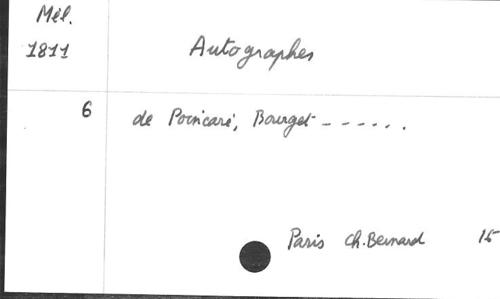 Mél.
1811 Autographes
6 de Poincaré, Bourget - - - - . .
Paris Ch. Bernard 15